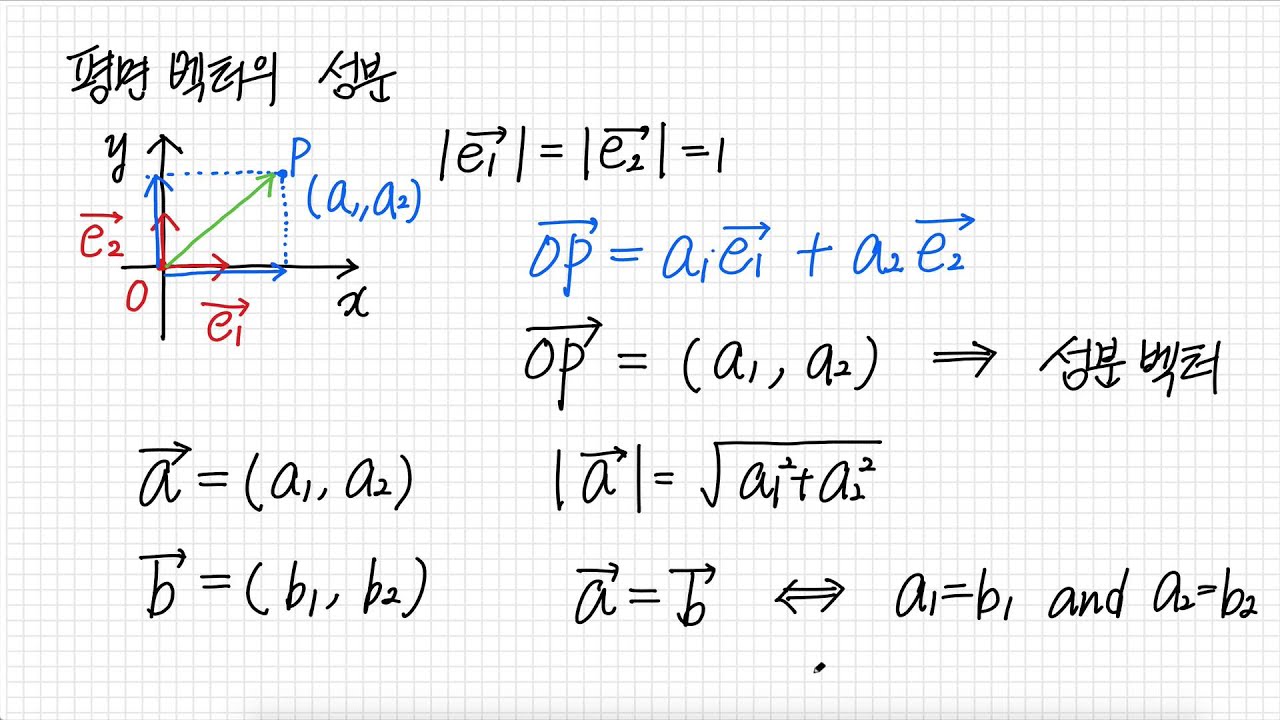 평면 벡터의 성분
y
P
(a₁, a₂)
e₂⃗
O
e₁⃗
x
|e₁⃗| = |e₂⃗| = 1
OP⃗ = a₁e₁⃗ + a₂e₂⃗
OP⃗ = (a₁, a₂) ⇒ 성분 벡터
a⃗ = (a₁, a₂) |a⃗| = √(a₁² + a₂²)
b⃗ = (b₁, b₂) a⃗ = b⃗ ⇔ a₁ = b₁ and a₂ = b₂